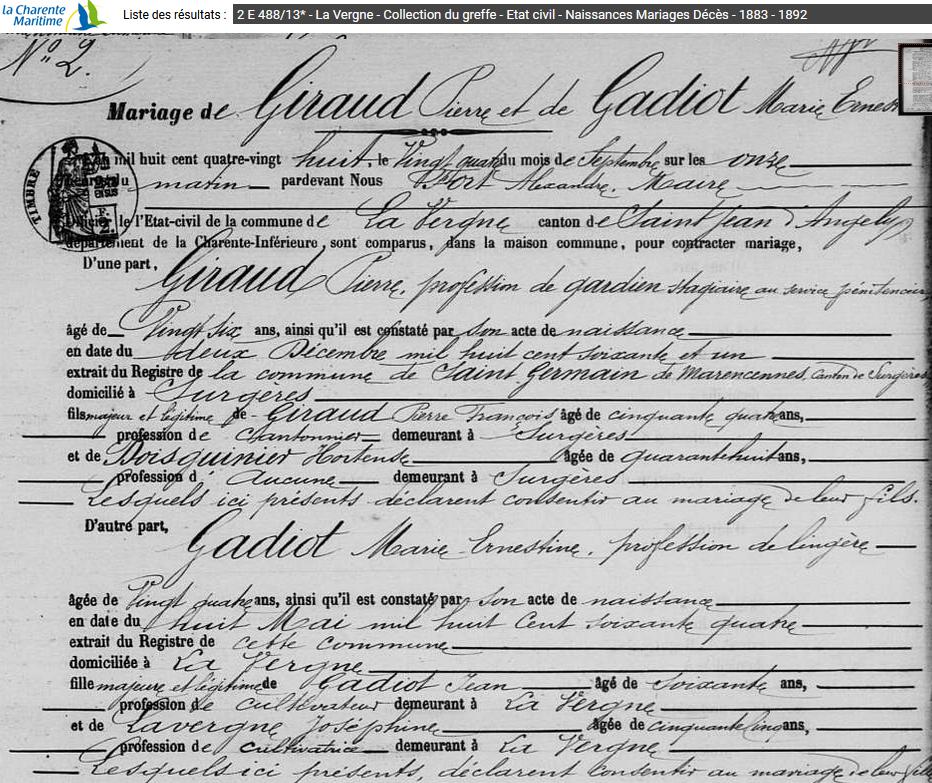 la Charente Maritime
Liste des résultats : 2 E 488/13* - La Vergne - Collection du greffe - Etat civil - Naissances Mariages Décès - 1883 - 1892
N° 2.
Mariage de Giraud Pierre et de Gadiot Marie Ernest
mil huit cent quatre-vingt huit, le Vingt quatre du mois de Septembre sur les onze
du matin pardevant Nous Alexandre, Maire
TIMBRE
Officier de l'Etat-civil de la commune de La Vergne canton de Saint Jean d'Angely
département de la Charente-Inférieure, sont comparus, dans la maison commune, pour contracter mariage,
D'une part,
Giraud Pierre, profession de gardien stagiaire au service pénitencier
âgé de Vingt six ans, ainsi qu'il est constaté par son acte de naissance
en date du deux Décembre mil huit cent soixante et un
extrait du Registre de la commune de Saint Germain de Marencennes, Canton de Surgères
domicilié à Surgères
fils majeur et légitime de Giraud Pierre François âgé de cinquante quatre ans,
profession de Cantonnier demeurant à Surgères
et de Boisquinier Hortense âgée de quarante huit ans,
profession d' Aucune demeurant à Surgères
Lesquels ici présents déclarent consentir au mariage de leur fils.
D'autre part,
Gadiot Marie Ernestine, profession de lingère
âgée de Vingt quatre ans, ainsi qu'il est constaté par son acte de naissance
en date du huit Mai mil huit Cent soixante quatre
extrait du Registre de cette commune
domiciliée à La Vergne
fille majeure et légitime de Gadiot Jean âgé de Soixante ans,
profession de cultivateur demeurant à La Vergne
et de Lavergne Joséphine âgée de cinquante cinq ans,
profession de cultivatrice demeurant à La Vergne
Lesquels ici présents, déclarent consentir au mariage de leur fille